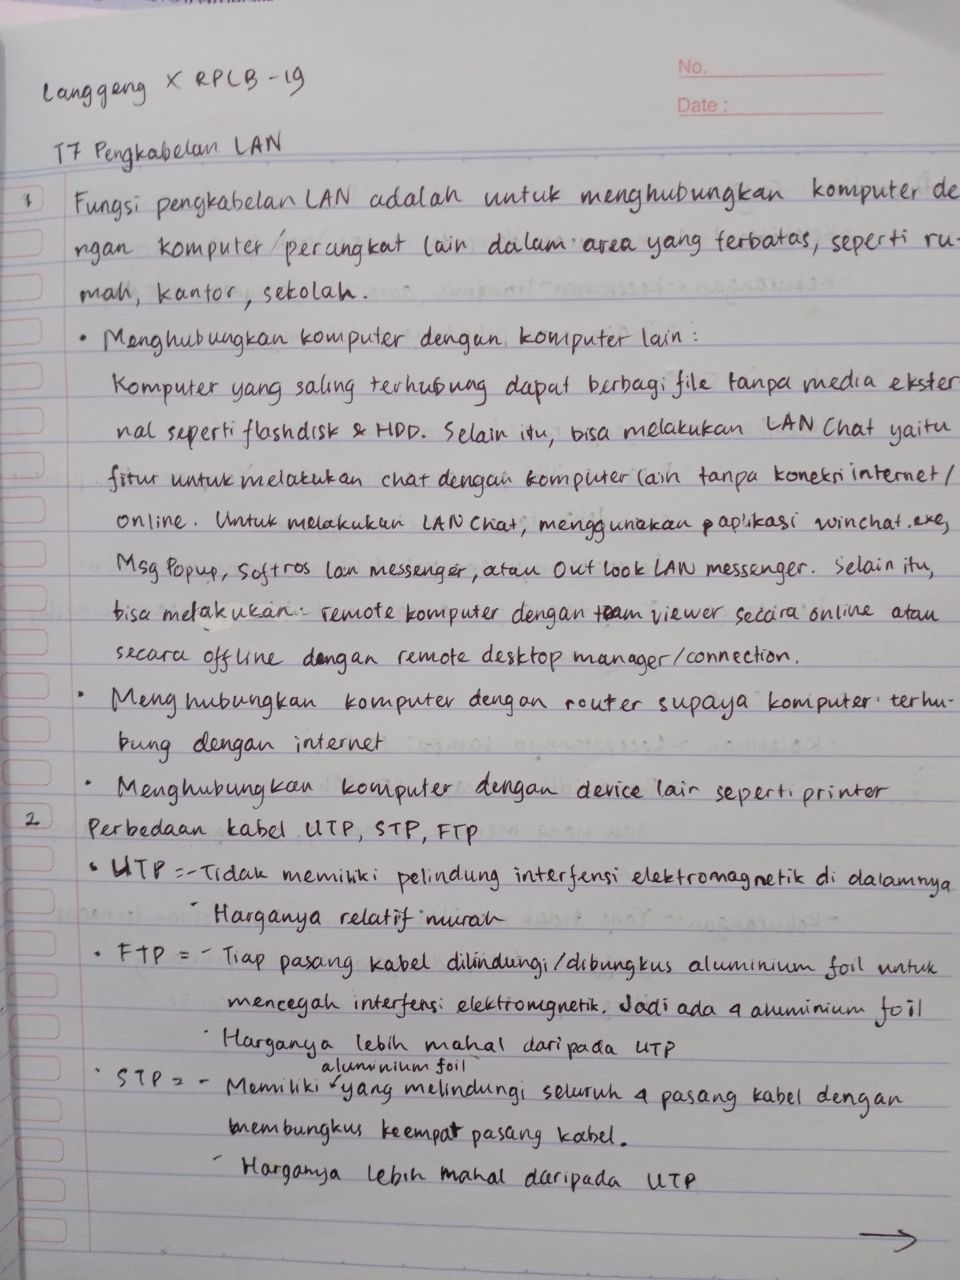 Langgeng X RPLB-19
No.
Date :
T7 Pengkabelan LAN
1 Fungsi pengkabelan LAN adalah untuk menghubungkan komputer de
ngan komputer/perangkat lain dalam area yang terbatas, seperti ru-
mah, kantor, sekolah.
• Menghubungkan komputer dengan komputer lain :
Komputer yang saling terhubung dapat berbagi file tanpa media ekster
nal seperti flashdisk & HDD. Selain itu, bisa melakukan LAN Chat yaitu
fitur untuk melakukan chat dengan komputer lain tanpa koneksi internet/
online. Untuk melakukan LAN Chat, menggunakan aplikasi winchat.exe,
Msg Popup, Softros lan messenger, atau Out look LAN messenger. Selain itu,
bisa melakukan remote komputer dengan team viewer secara online atau
secara offline dengan remote desktop manager/connection.
• Menghubungkan komputer dengan router supaya komputer terhu-
bung dengan internet
• Menghubungkan komputer dengan device lain seperti printer
2 Perbedaan kabel UTP, STP, FTP
• UTP = - Tidak memiliki pelindung interfensi elektromagnetik di dalamnya
- Harganya relatif murah
• FTP = - Tiap pasang kabel dilindungi/dibungkus aluminium foil untuk
mencegah interfensi elektromgnetik. Jadi ada 4 aluminium foil
- Harganya lebih mahal daripada UTP
aluminium foil
• STP = - Memiliki yang melindungi seluruh 4 pasang kabel dengan
membungkus keempat pasang kabel.
- Harganya lebih mahal daripada UTP
→